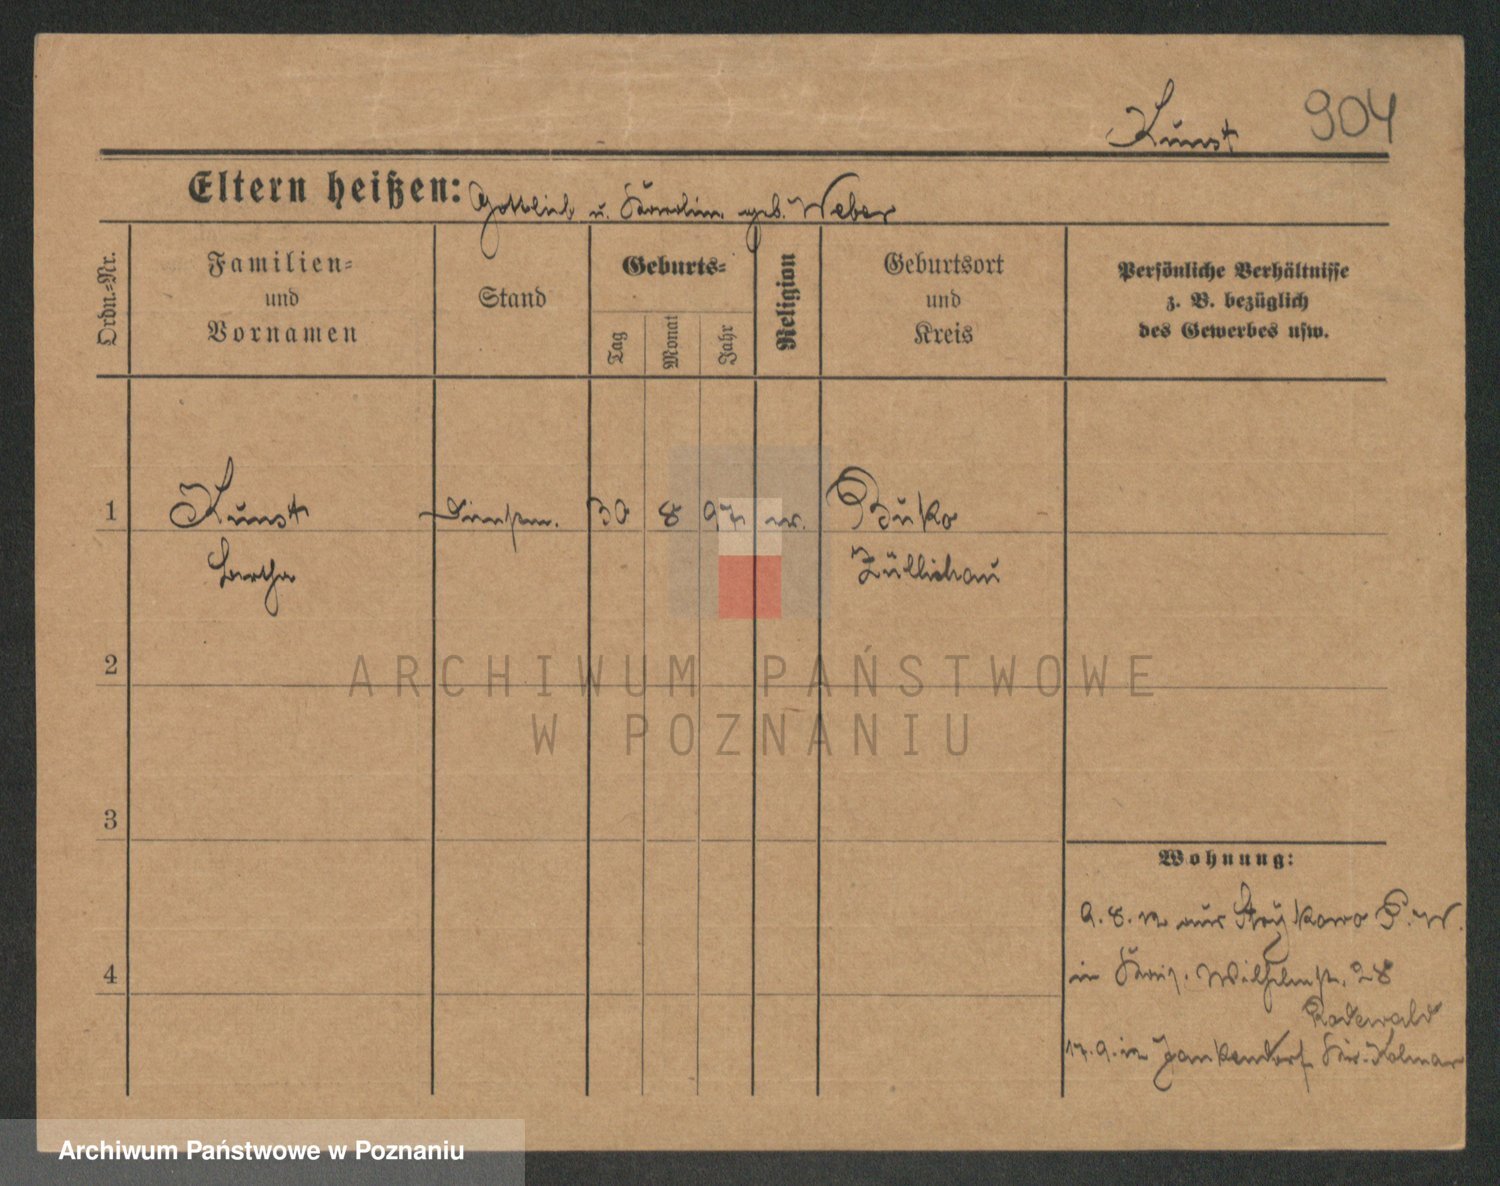 Kunst 904
Eltern heißen: Gottlieb u. Karolin. geb. Weber
Ordn.-Nr.
Familien-
und
Vornamen
Stand
Geburts-
Tag
Monat
Jahr
Religion
Geburtsort
und
Kreis
Persönliche Verhältnisse
z. B. bezüglich
des Gewerbes usw.
1 Kunst 30 8 97 ev.
Bertha Züllichau
2
3
4
Wohnung:
9.8.12 aus P.W.
in Wilhelmstr. 28
Rodewald
17.9. in Jankendorf Kr. Kolmar
ARCHIWUM PAŃSTWOWE
W POZNANIU
Archiwum Państwowe w Poznaniu